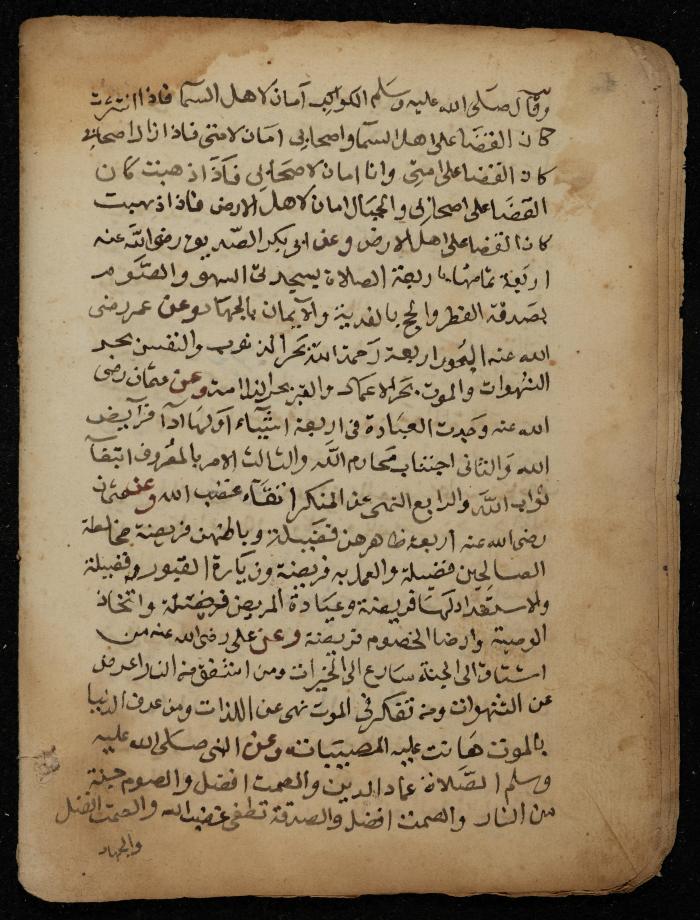 وقال صلى الله عليه وسلم الكواكب أمان لاهل السما فاذا انتثرت
كان القضا على اهل السما واصحابي امان لامتي فاذا زال اصحابي
كان القضا على امتي وانا امان لاصحابي فاذا ذهبت كان
القضا على اصحابي والجبال امان لاهل الارض فاذا ذهبت
كان القضا على اهل الارض وعن ابي بكر الصديق رضي الله عنه
اربعة تمامها باربعة الصلاة بسجدتي السهو والصوم
بصدقة الفطر والحج بالفدية والايمان بالجهاد وعن عمر رضى
الله عنه البحور اربعة رحمة الله بحر الذنوب والنفس بحر
الشهوات والموت بحر الاعمار والقبر بحر الندامة وعن عثمان رضى
الله عنه وجدت العبادة في اربعة اشياء اولها ادآ فرآيض
الله والثانى اجتناب محارم الله والثالث الامر بالمعروف ابتغآ
ثواب الله والرابع النهي عن المنكر اتقاء غضب الله وعن عثمان
رضى الله عنه اربعة ظاهرهن فضيلة وباطنهن فريضة مخالطة
الصالحين فضيلة والعمل به فريضة وزيارة القبور فضيلة
والاستعداد لها فريضة وعيادة المريض فضيلة واتخاذ
الوصية وارضا الخصوم فريضة وعن على رضى الله عنه من
اشتاق الى الجنة سارع الى الخيرات ومن اشفق من النار اعرض
عن الشهوات ومن تفكر في الموت نهى عن اللذات ومن عرف الدنيا
بالموت هانت عليه المصيبات وعن النبي صلى الله عليه
وسلم الصلاة عماد الدين والصمت افضل والصوم جنة
من النار والصمت افضل والصدقة تطفى غضب الله والصمت افضل
والجهاد